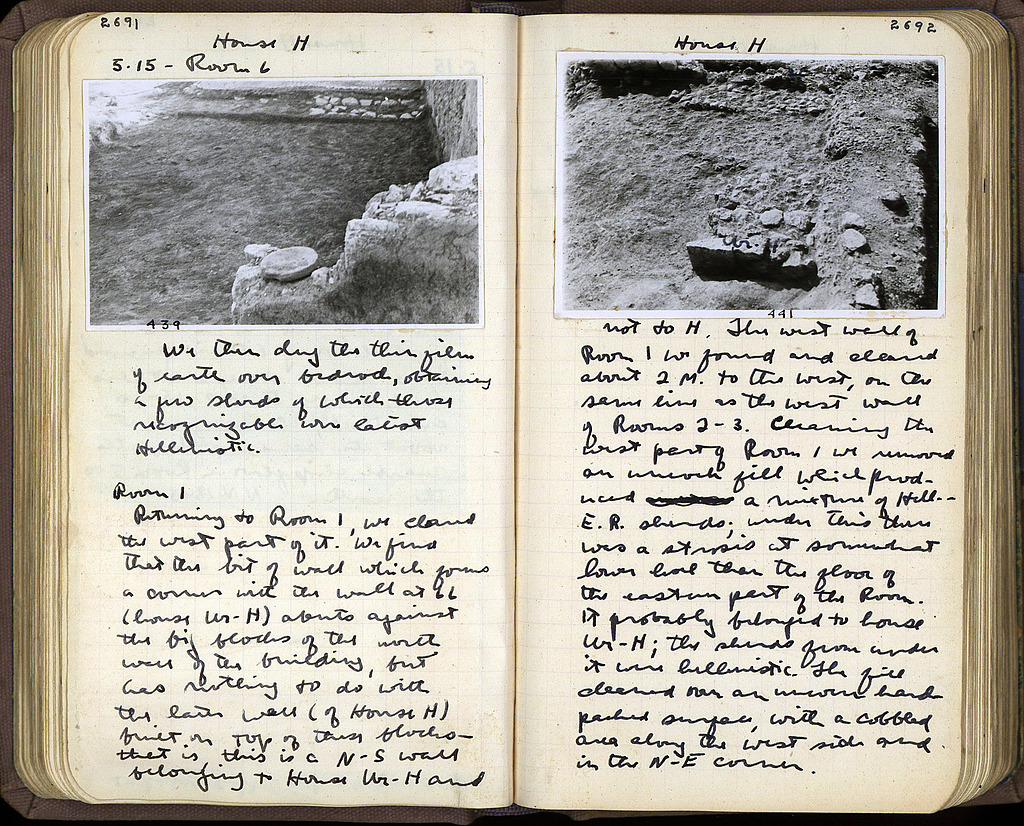 2691
House H
5.15 - Room 6
439
We then dug the thin film
of earth over bedrock, obtaining
a few sherds of which those
recognizable were latest
Hellenistic.
Room 1
Returning to Room 1, we cleaned
the west part of it. We find
that the bit of wall which forms
a corner with the wall at 66
(house Ur-H) abuts against
the big blocks of the north
wall of the building, but
has nothing to do with
the later wall (of House H)
built on top of these blocks –
that is, this is a N-S wall
belonging to House Ur-H and
2692
House H
Ur-H
441
not to H. The west wall of
Room 1 we found and cleaned
about 2 M. to the west, on the
same line as the west wall
of Rooms 2-3. Cleaning the
west part of Room 1 we removed
an uneven fill which prod-
uced a mixture of Hell.-
E.R. sherds; under this there
was a strosis at somewhat
lower level than the floor of
the eastern part of the Room.
It probably belonged to house
Ur-H; the sherds from under
it were hellenistic. The fill
cleaned over an uneven hard
packed surface, with a cobbled
area along the west side and
in the N-E corner.